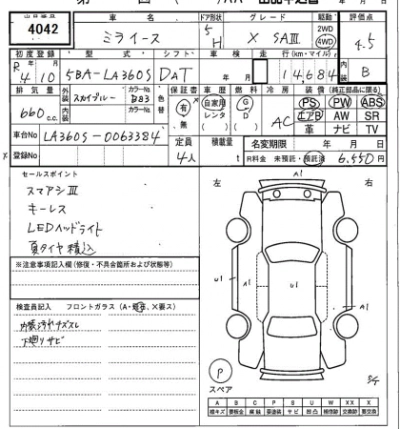 出品番号 車名 ドア形状 グレード 駆動 評価点
4042 ミライース 5 H X SAⅢ 2WD 4WD 4.5
初度登録 型式 シフト 車検 走行(km・マイル) 内装
R 4 / 10 5BA-LA360S DAT 年 月 14,684 B
排気量 外装 スカイブルー カラーNo. B83 色替 保証書 車歴 燃料 冷房 装備(純正部品に限る)
660 c.c. 内装 カラーNo. 有 無 自家用 レンタ ( ) G D ( ) AC PS PW ABS
エアB AW SR
革 ナビ TV
車台No LA360S-0063384 定員 積載量 名変期限 年 月 日
登録No 4人 t R料金 未預託・預託済 6,550円
セールスポイント
スマアシⅢ
キーレス
LEDヘッドライト
夏タイヤ積込
※注意事項記入欄(修復・不具合箇所および状態等)
検査員記入 フロントガラス(A・飛石、×要ス)
内装汚れ キズスレ
下廻りサビ
左 右
A1
U1 U1 A1 A1
A1
P
スペア
A B C P S U W X XX